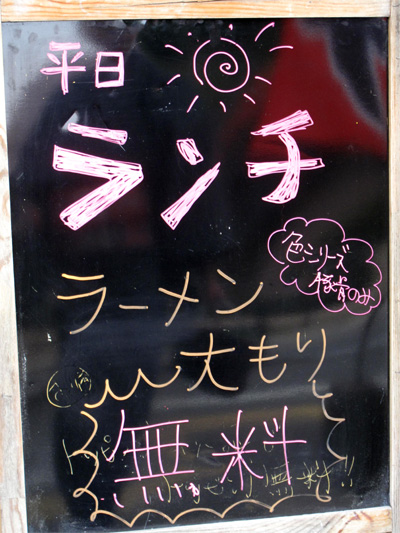 平日
ランチ
色シリーズ
豚骨のみ
ラーメン
大もり
無料
無料!!